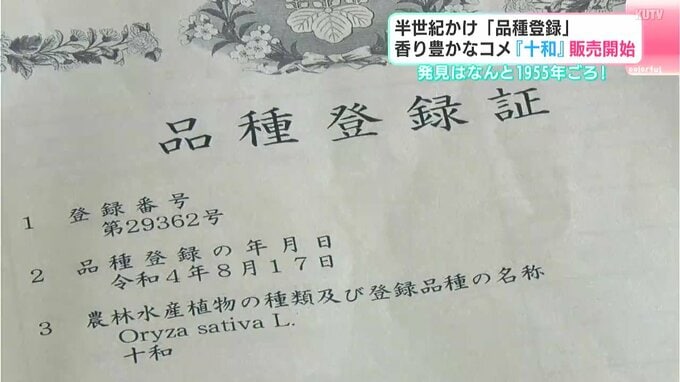 KUTV
半世紀かけ「品種登録」
香り豊かなコメ『十和』販売開始
発見はなんと1955年ごろ!
colorful
品種登録証
1 登録番号
第29362号
2 品種登録の年月日
令和4年8月17日
3 農林水産植物の種類及び登録品種の名称
Oryza sativa L.
十和